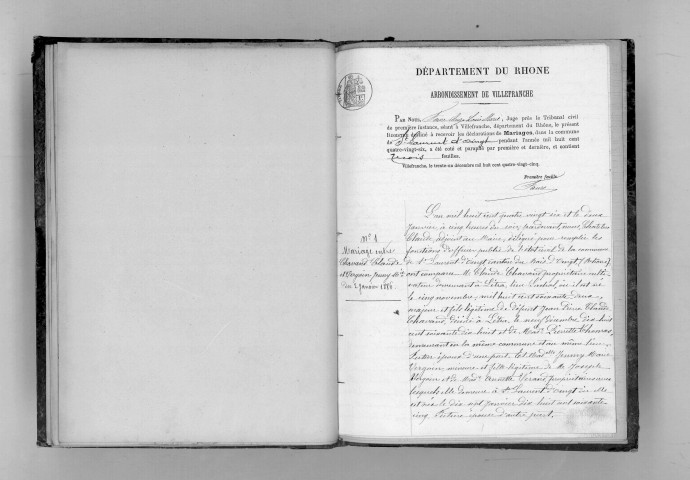 DÉPARTEMENT DU RHONE
ARRONDISSEMENT DE VILLEFRANCHE
PAR NOUS, Juge près le Tribunal civil
de première instance, séant à Villefranche, département du Rhône, le présent
Registre destiné à recevoir les déclarations de Mariages, dans la commune
de St Laurent d'Oingt pendant l'année mil huit cent
quatre-vingt-six, a été coté et paraphé par première et dernière, et contient
feuilles.
Villefranche, le trente-un décembre mil huit cent quatre-vingt-cinq.
Première feuille
Faure
N° 1
Mariage entre
Chavand Claude
et Vergoin Jenny Mie
du 2 janvier 1886
L'an mil huit cent quatre vingt six et le deux
janvier à cinq heures du soir pardevant nous Chatelus
Claude, adjoint au Maire, délégué pour remplir les
fonctions d'officier public de l'état civil de la commune
de St Laurent d'Oingt canton du Bois d'Oingt (Rhône)
ont comparu Mr Claude Chavand propriétaire culti-
vateur demeurant à Létra, lieu où il est né
le cinq novembre mil huit cent soixante deux
majeur et fils légitime de défunt Jean Claude
Chavand, décédé à Létra, le neuf décembre dix huit
cent soixante dix huit et de Mad. Pierrette Chermet
demeurant en la même commune et au même lieu
futur époux d'une part. Et Mad.elle Jenny Marie
Vergoin, mineure et fille légitime de Mr Joseph
Vergoin et de Mad. Annette Girand propriétaires avec
lesquels elle demeure à St Laurent d'Oingt où elle
est née le dix sept janvier dix huit cent soixante
cinq, future épouse d'autre part.